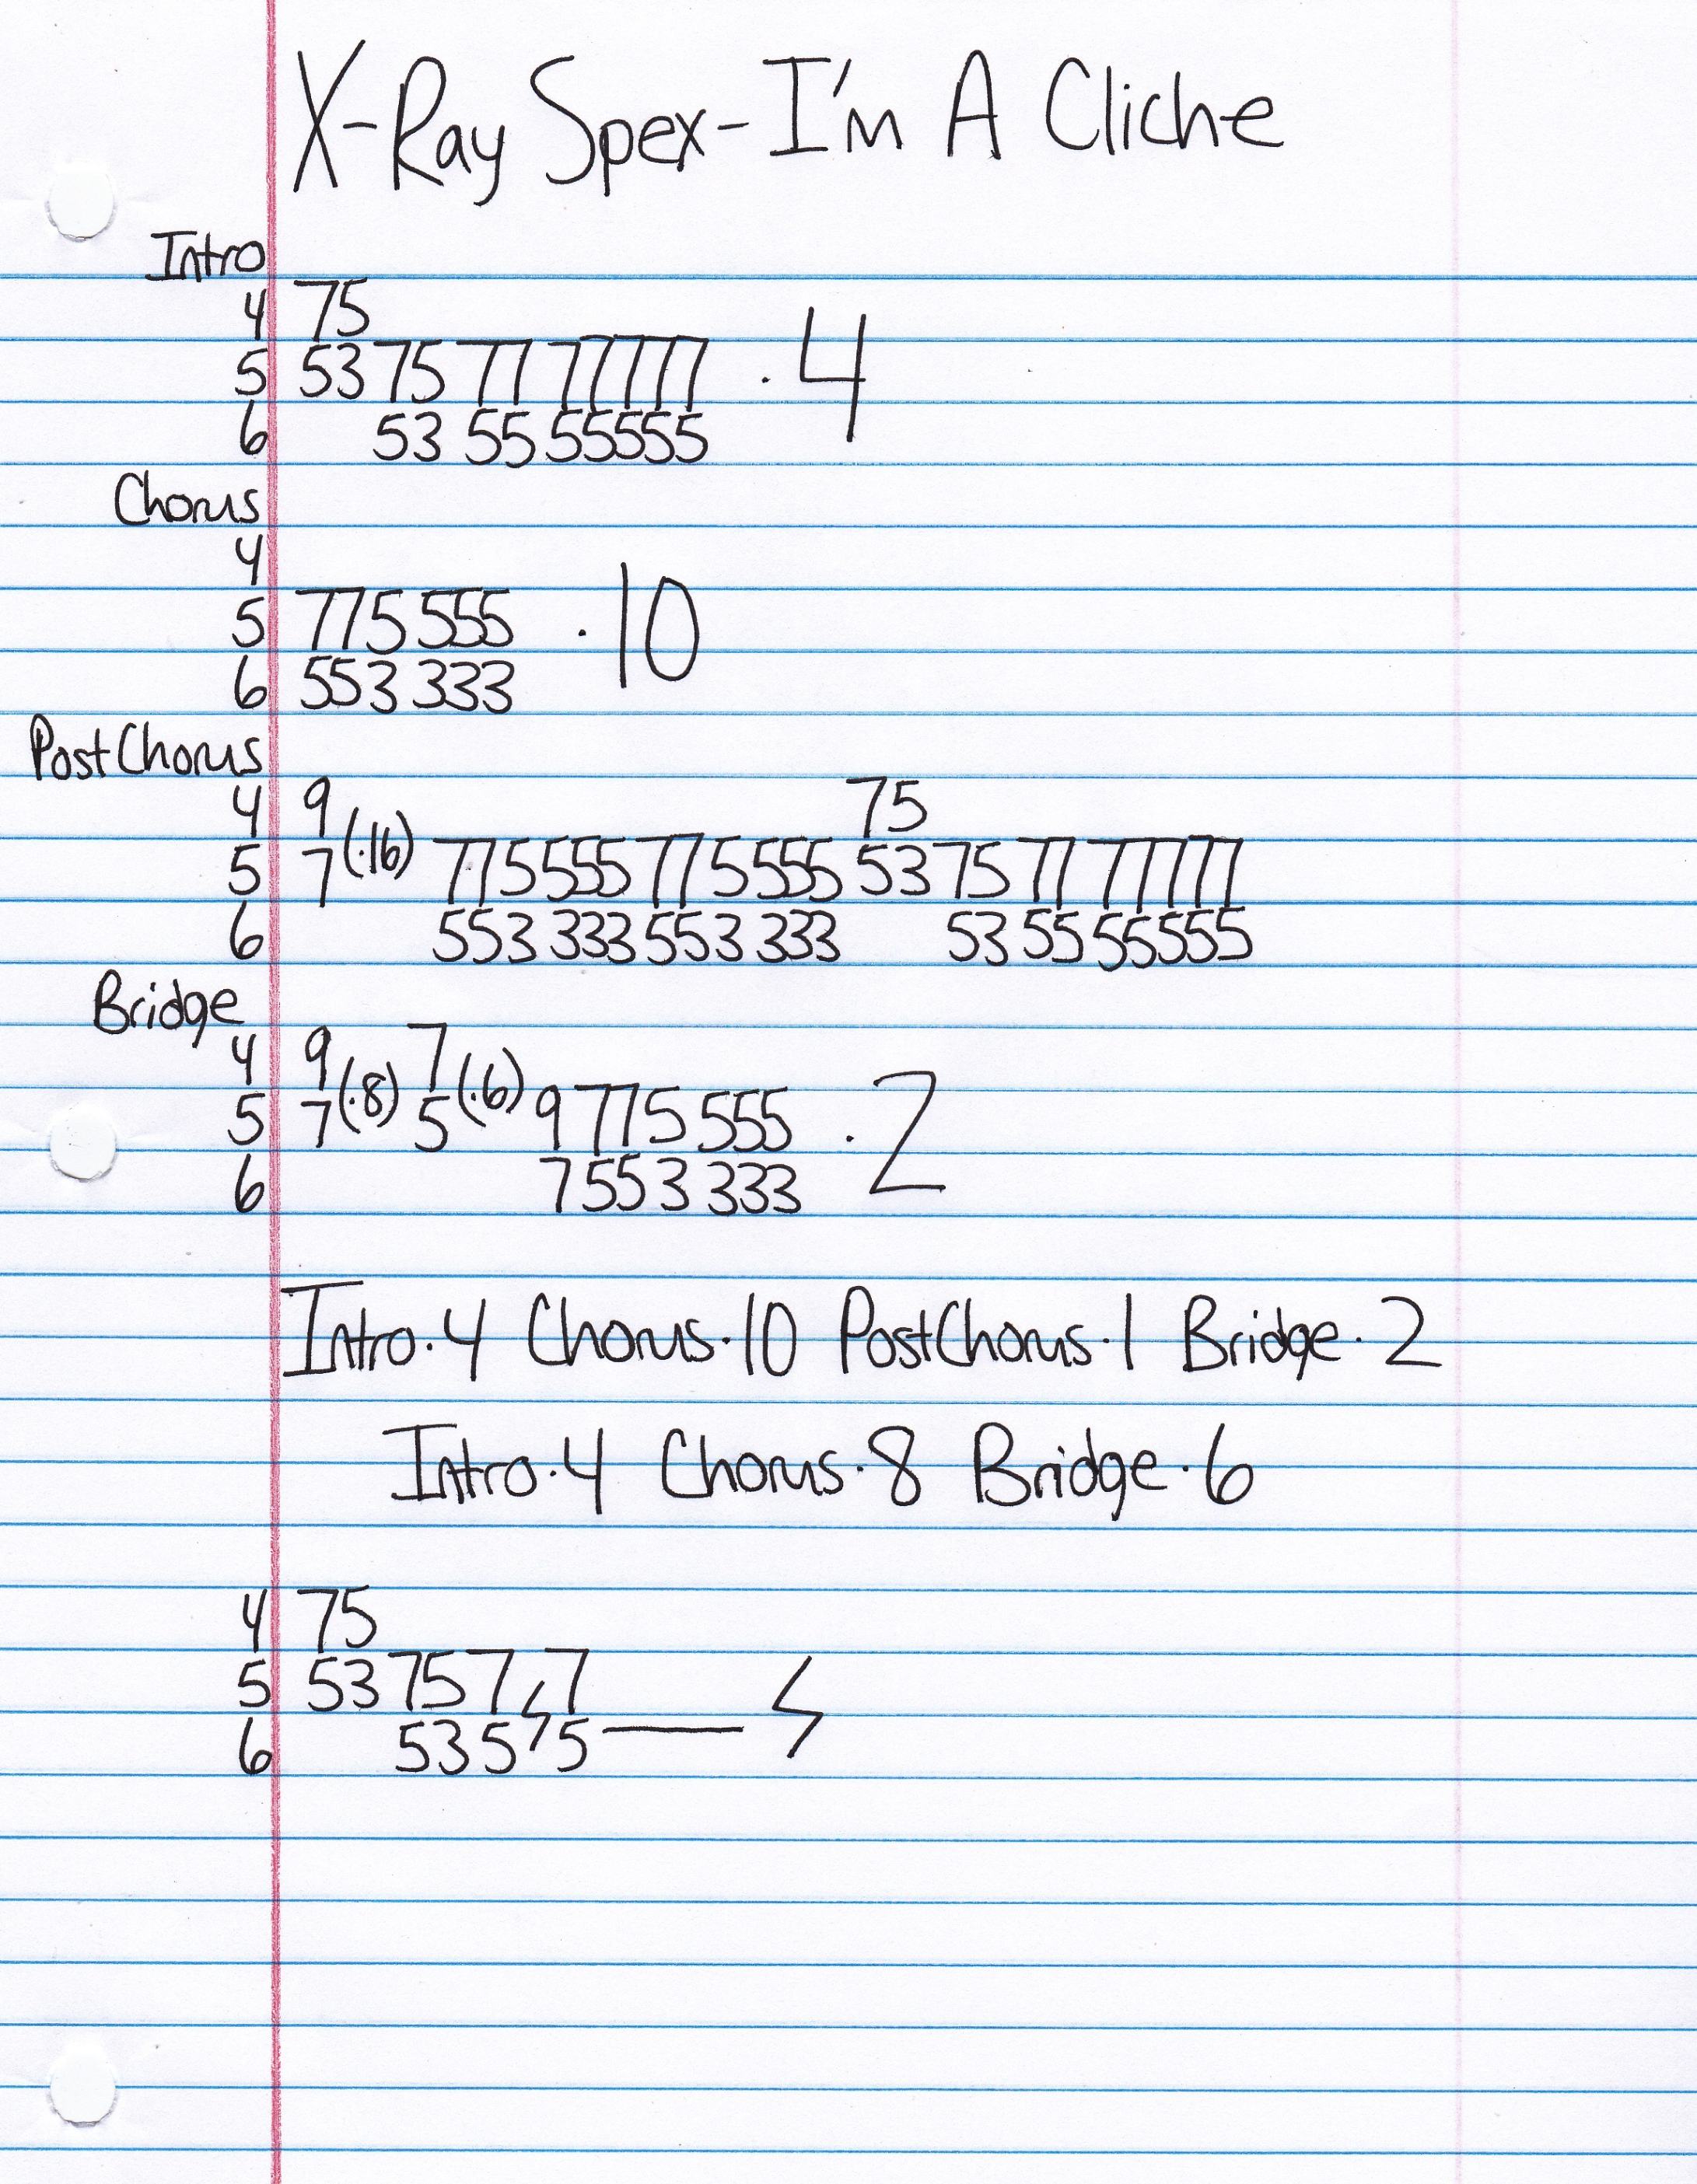 X-Ray Spex- I'm A Cliche
Intro
4 75
5 53 75 77 77777 .4
6 53 55 55555
Chorus
4
5 775 555 .10
6 553 333
PostChorus
4 9 75
5 7 (.16) 775555 775555 53 75 77 77777
6 553 333 553 333 53 55 55555
Bridge
4 9 7
5 7 (.8) 5 (.6) 9 775 555 .2
6 7 553 333
Intro.4 Chorus.10 PostChorus.1 Bridge.2
Intro.4 Chorus.8 Bridge.6
4 75
5 53 757 7
6 535 5